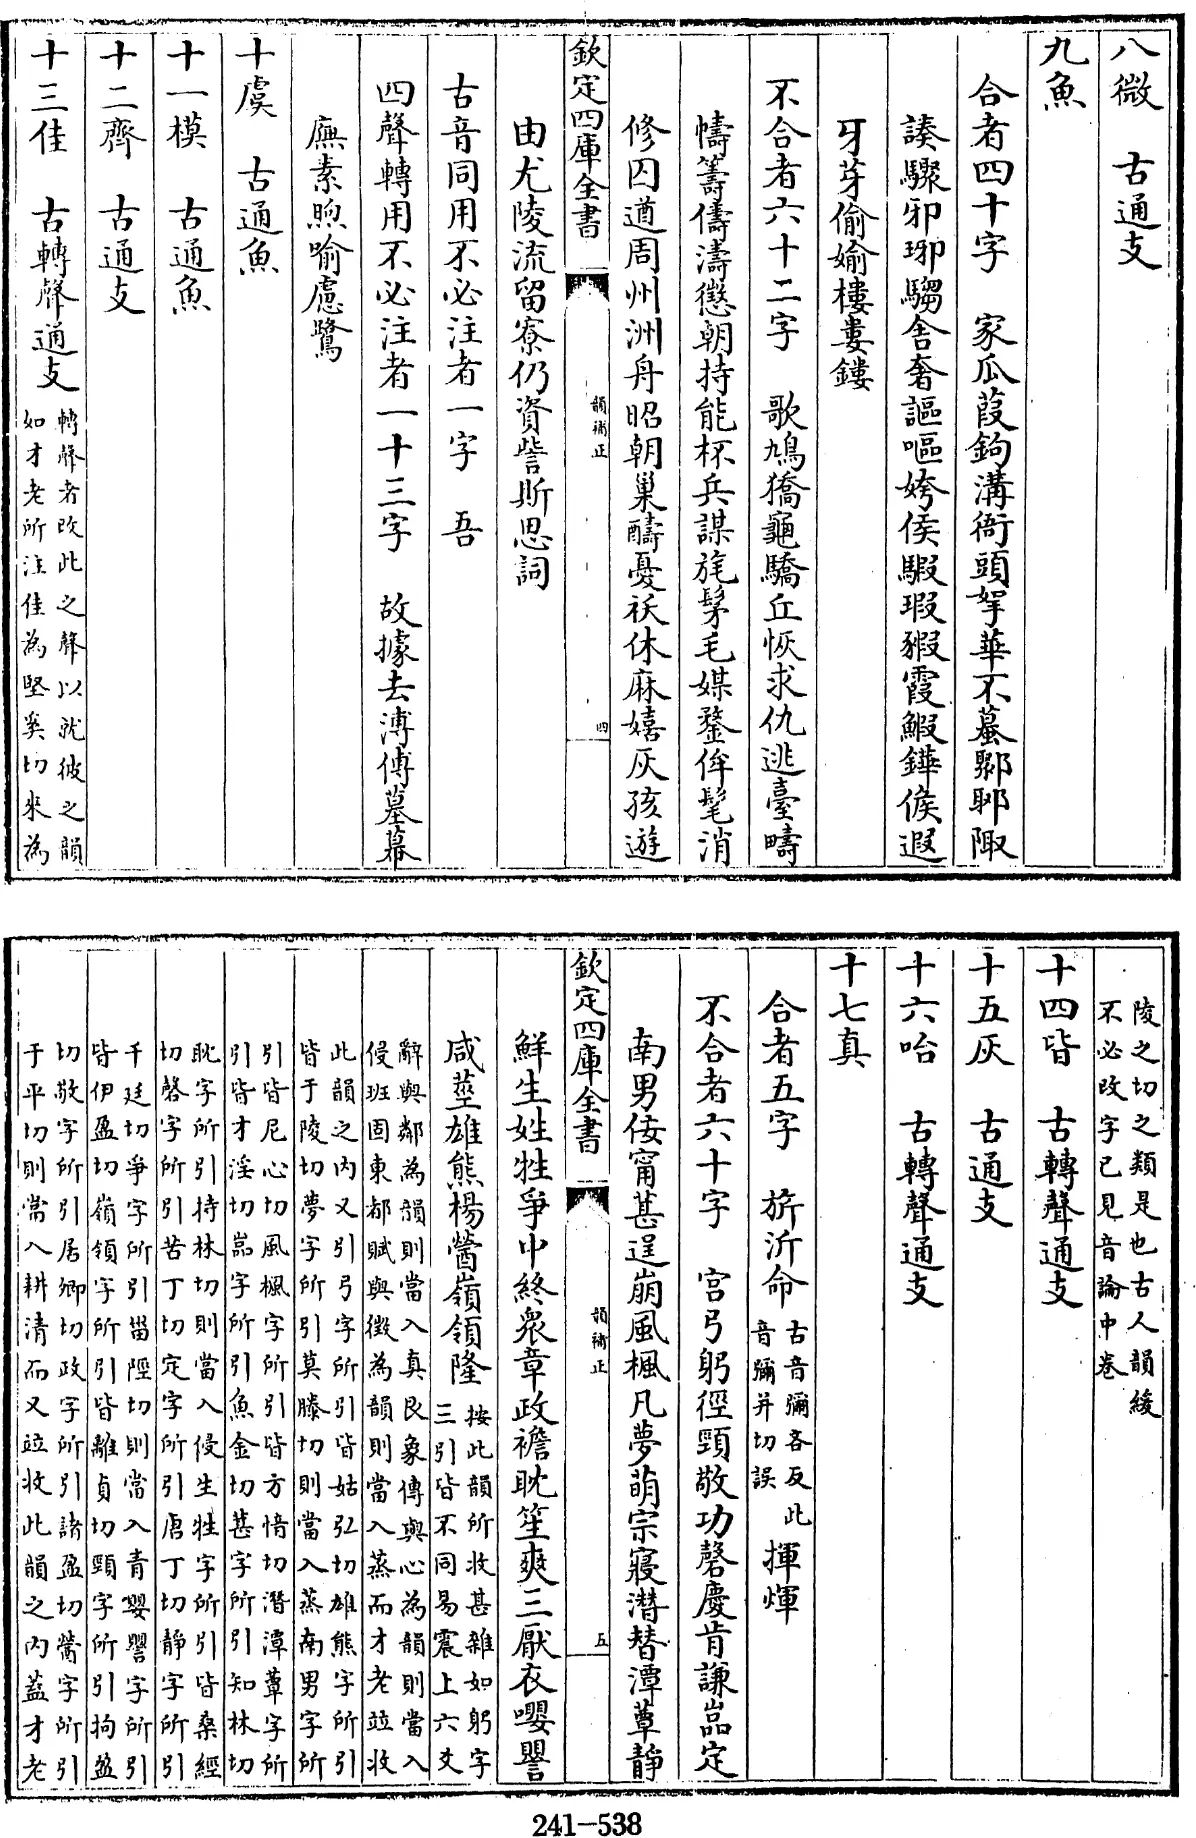 八微　古通支
九魚
合者四十字　家瓜葭鉤溝衙頭挐華不蟇鄹耶陬
諑驟邪琊騶舍奢謳嘔姱侯騢瑕豭霞鰕鏵鯸遐
牙芽偷婾樓婁鏤
不合者六十二字　歌鳩獢龜驕丘恢求仇逃臺疇
幬籌儔濤懲朝持能杯兵謀旄髳毛媒鍪侔髦消
修囚遒周州洲舟昭朝巢醻憂祅休麻嬉灰孩遊
欽定四庫全書
韻補正
四
由尤陵流留寮仍資訾斯思詞
古音同用不必注者一字　吾
四聲轉用不必注者一十三字　故據去溥傅墓幕
廡素煦喻慮鷺
十虞　古通魚
十一模　古通魚
十二齊　古通支
十三佳　古轉聲通支
轉聲者改此之聲以就彼之韻
如才老所注佳為堅奚切來為
陵之切之類是也古人韻緩
不必改字已見音論中卷
十四皆　古轉聲通支
十五灰　古通支
十六咍　古轉聲通支
十七真
合者五字　旂沂命
古音彌吝反此
音彌并切誤
揮煇
不合者六十字　宮弓躬徑頸敬功磬慶肯謙嵓定
南男佞甯甚逞崩風楓凡夢萌宗寢潛替潭蕈靜
欽定四庫全書
韻補正
五
鮮生姓牲爭中終衆章政襜耽笙爽三厭衣嚶譻
咸莖雄熊楊營嶺領隆
按此韻所收甚雜如躬字
三引皆不同易震上六爻
辭與鄰為韻則當入真艮象傳與心為韻則當入
侵班固東都賦與徵為韻則當入蒸而才老竝收
此韻之內又引弓字所引皆姑弘切雄熊字所引
皆于陵切夢字所引莫滕切則當入蒸南男字所
引皆尼心切風楓字所引皆方愔切潛潭蕈字所
引皆才淫切嵓字所引魚金切甚字所引知林切
耽字所引持林切則當入侵生牲字所引皆桑經
切磬字所引苦丁切定字所引唐丁切靜字所引
千廷切爭字所引甾陘切則當入青嚶譻字所引
皆伊盈切嶺領字所引皆離貞切頸字所引拘盈
切敬字所引居卿切政字所引諸盈切營字所引
于平切則當入耕清而又竝收此韻之內蓋才老
241-538